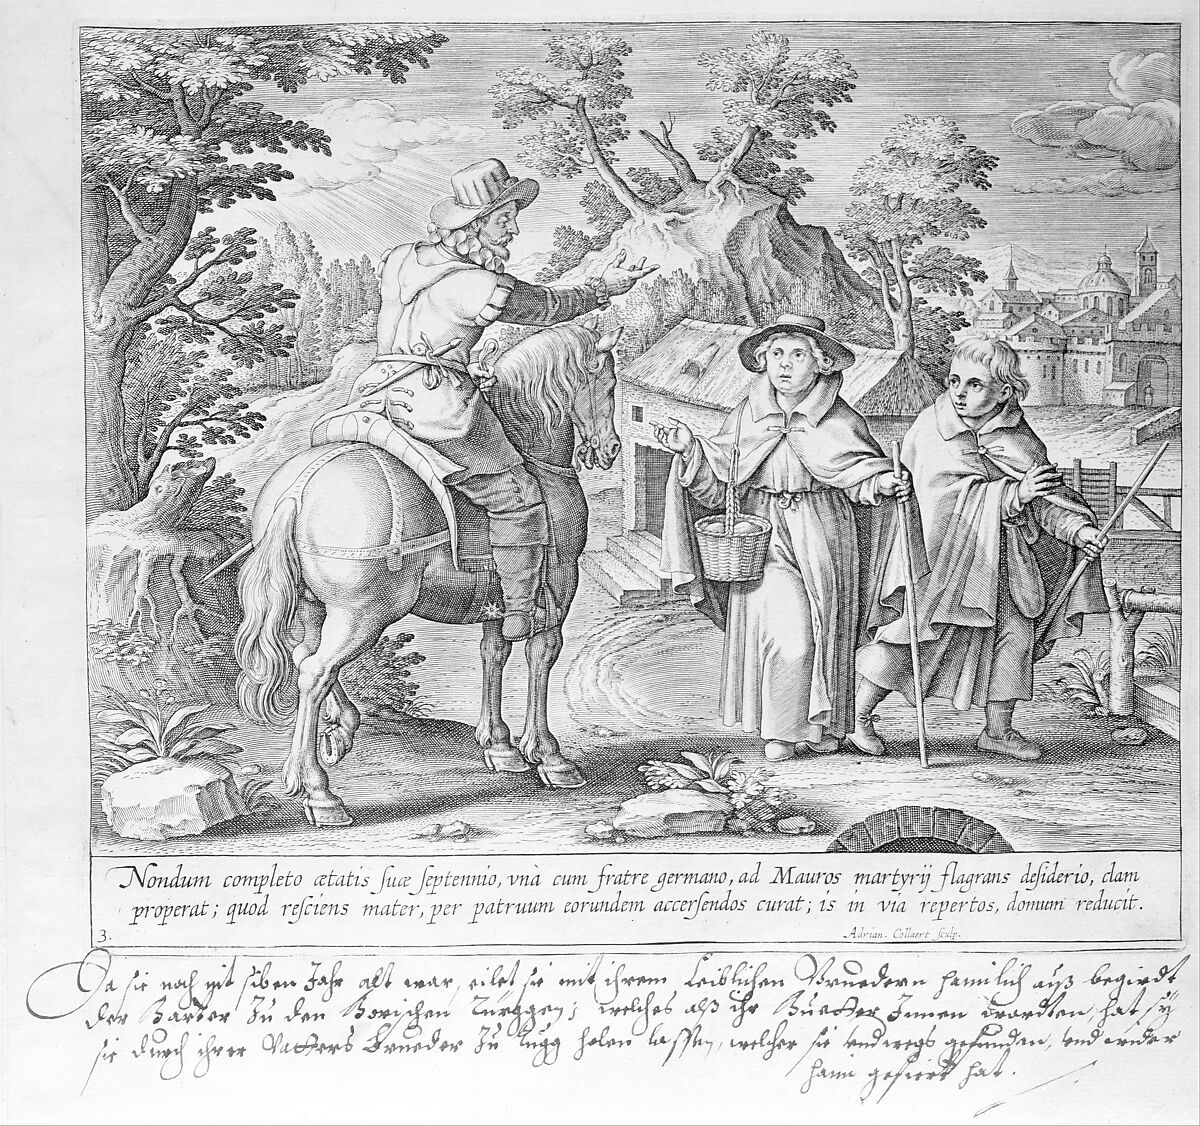 Nondum completo ætatis ſuæ ſeptennio, vnà cum fratre germano, ad Mauros martyrij flagrans deſiderio, clam
properat; quod reſciens mater, per patruum eorundem accerſendos curat; is in via repertos, domum reducit.
3.
Adrian. Collaert ſculp.
Da sie noch nit siben Jahr alt war, eilet sie mit ihrem Leiblichen Bruedern haimlich auß begirdt
der Marter Zu den Morischen; welches alß ihr Muetter Innen wordten, hat sÿ
sie durch ihres Vatters Brueder Zu holen lassen, welcher sie gefunden, und wider
haim gefiert hat.